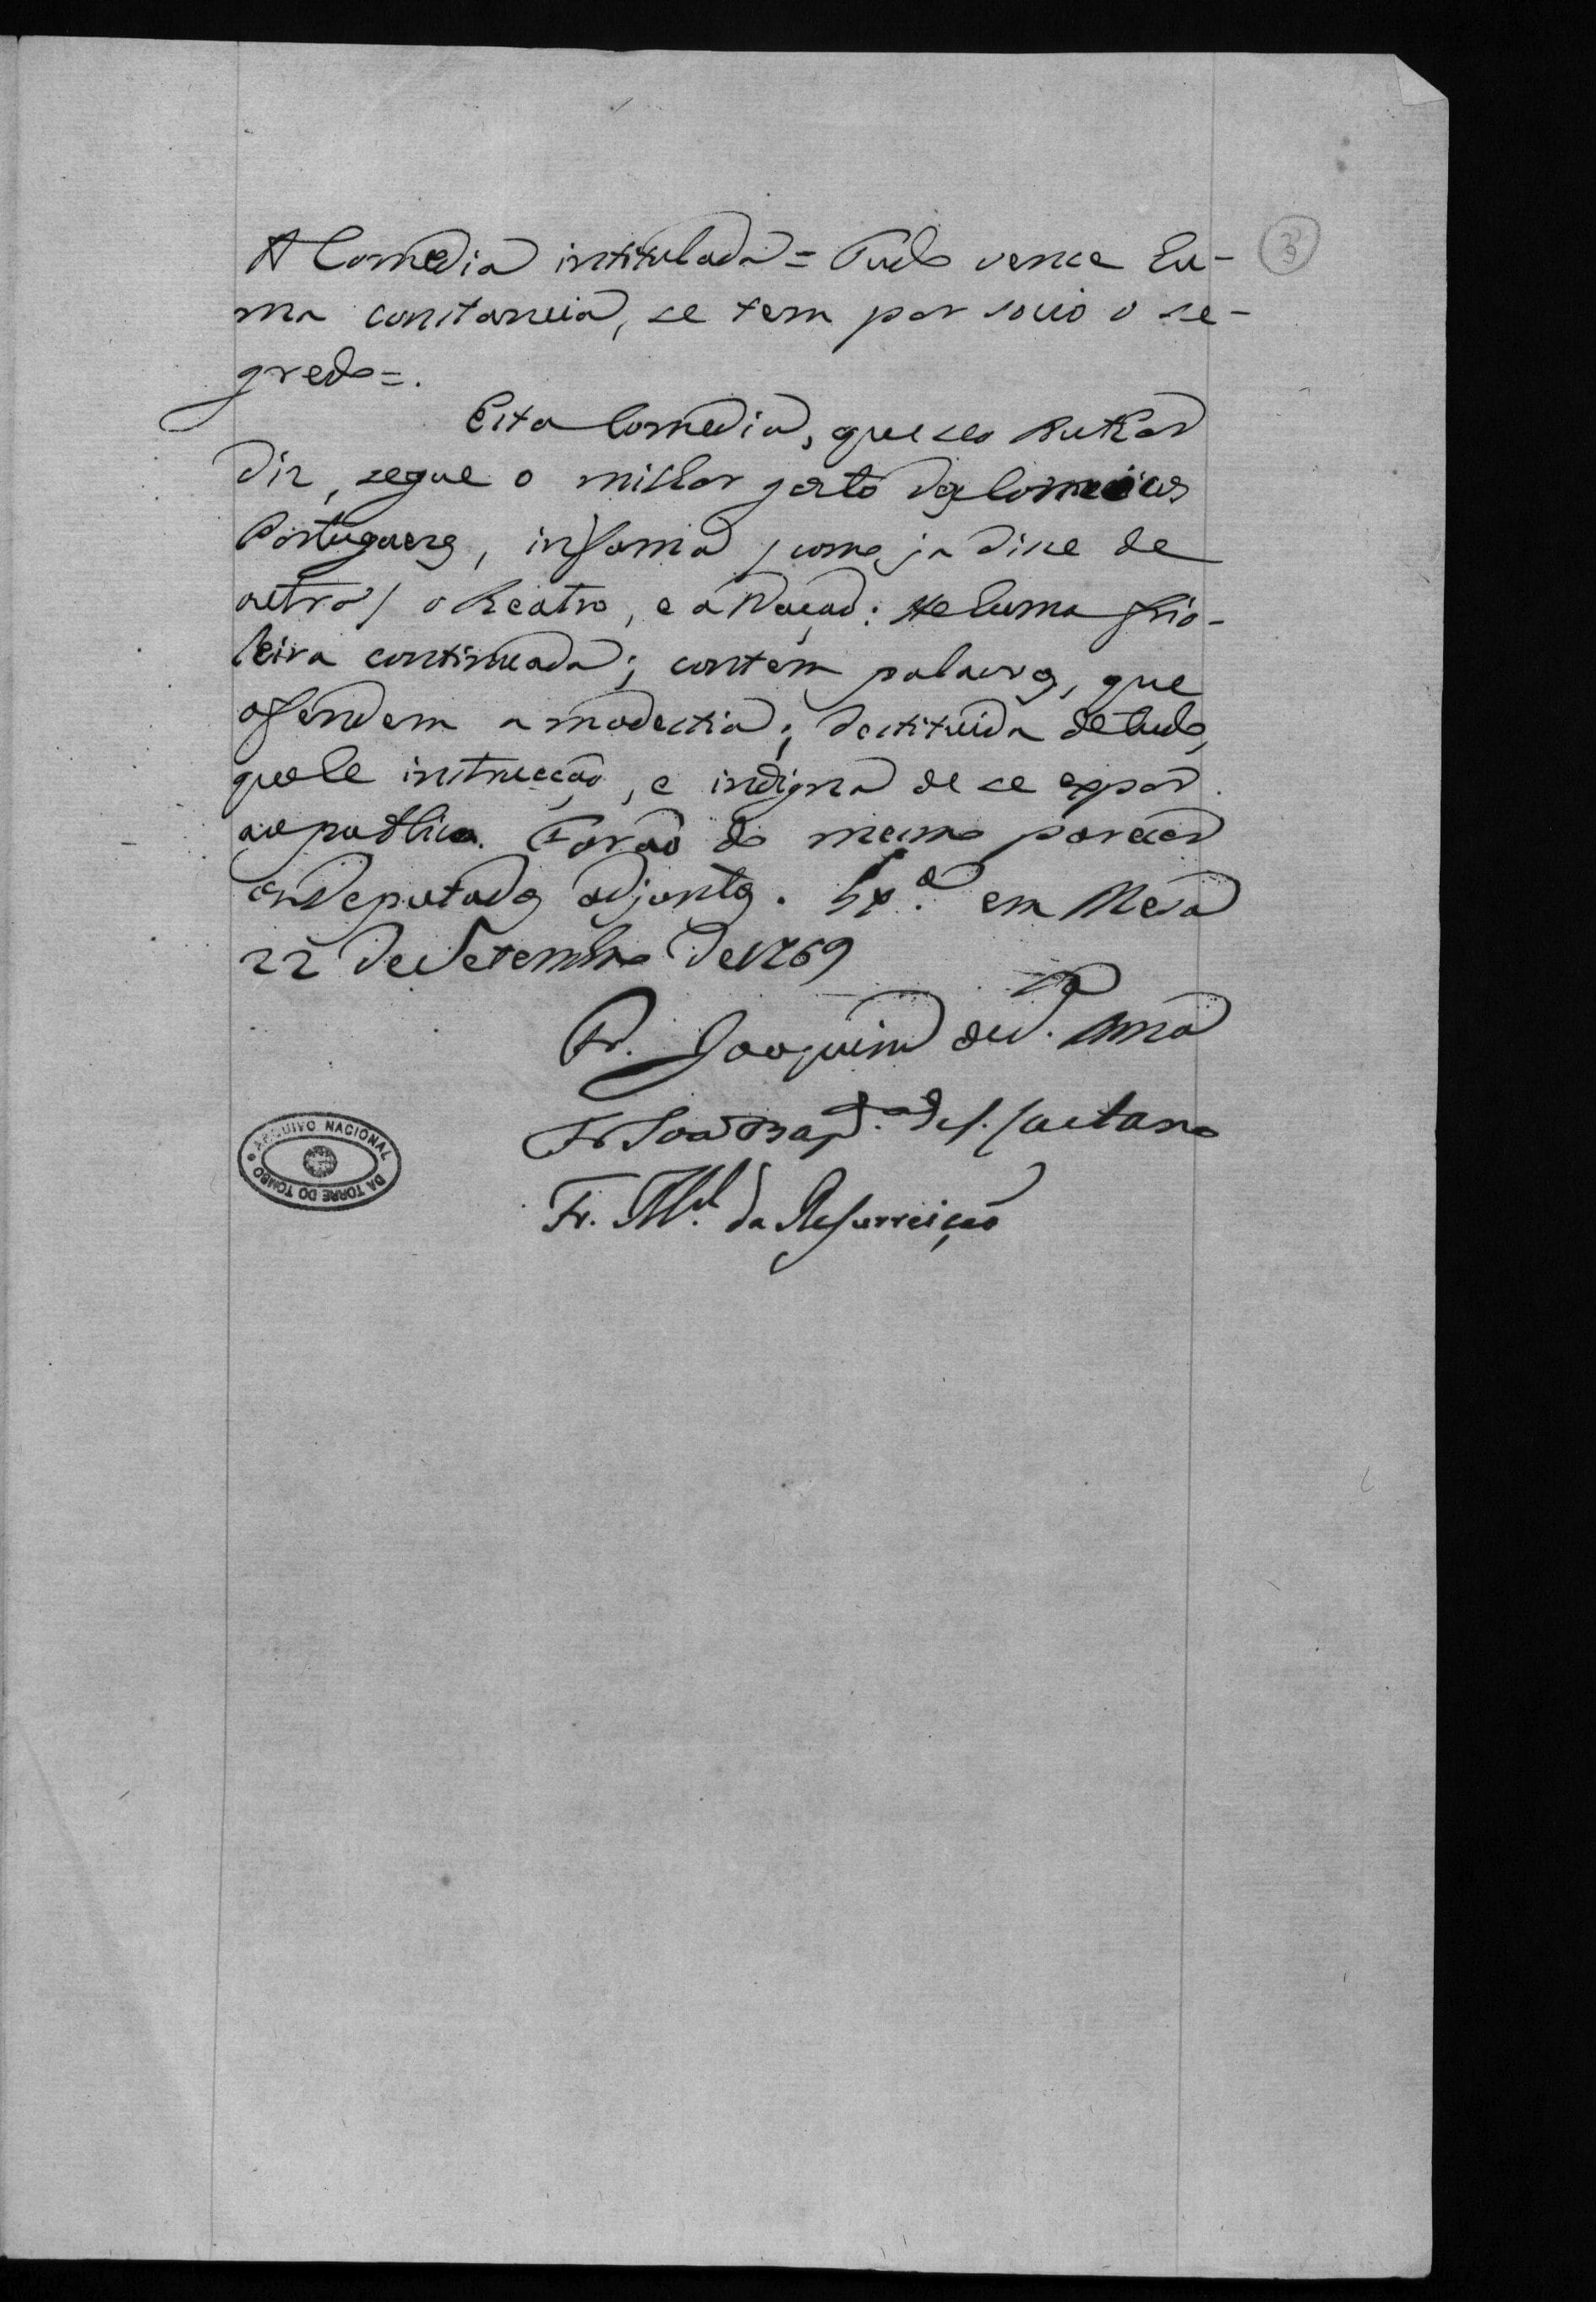 A Comedia intitulada = Tudo vence hu-
ma constancia, se tem por socio o se-
gredo =.
Esta Comedia, que seo Author
diz, segue o milhor gosto dos Comicos
Portuguezes, infama / como ja disse de
outra / o Theatro, e a Nação: He huma frio-
leira continuada; contém palavras, que
ofendem a modestia; destituida de tudo,
que he instrucção, e indigna de se expor
ao publico. Forão do mesmo parecer
os Deputados adjuntos. Lxª. em Meza
22 de Setembro de 1769
Fr. Joaquim de S. Anna
Fr João Bapª. de S. Caetano
Fr. Mel. da Resurreição
3
ARQUIVO NACIONAL DA TORRE DO TOMBO